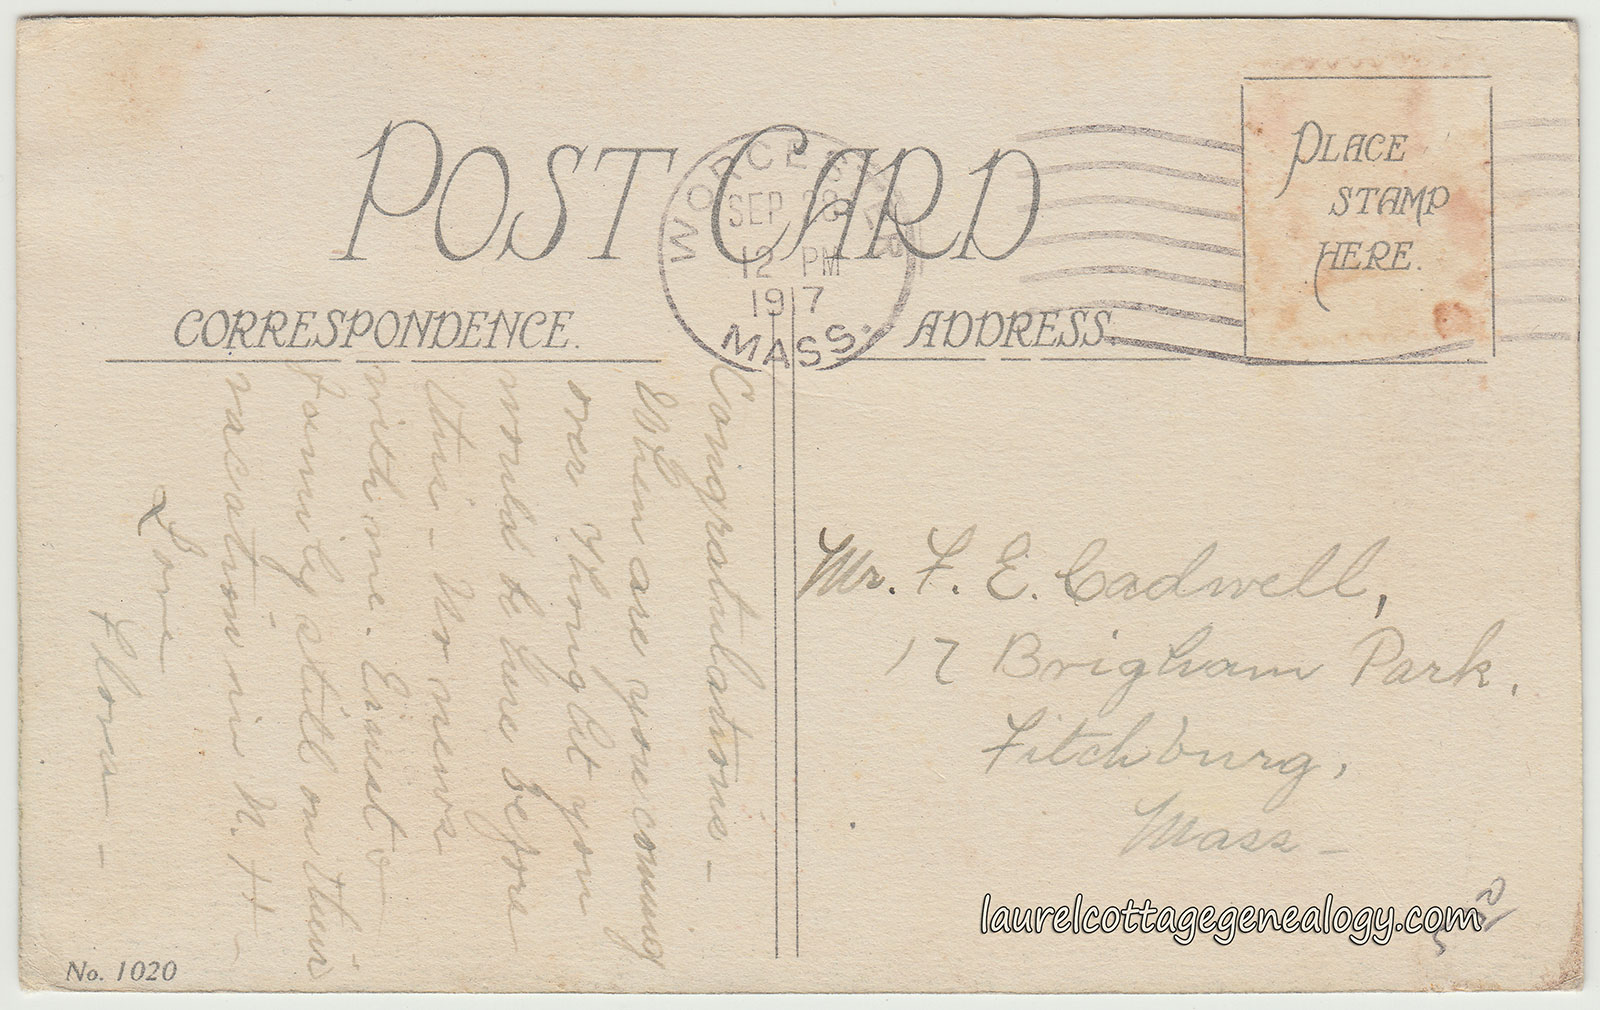 POST CARD
WORCESTER
SEP 28
12 PM
1917
MASS.
PLACE
STAMP
HERE.
CORRESPONDENCE.
ADDRESS.
Congratulations –
When are you coming
over thought you
would be here before
this – No news
with me. Ernest &
family still on their
vacation in N. H –
Love
Flora –
Mr. F. E. Cadwell,
17 Brigham Park.
Fitchburg,
Mass –
No. 1020
laurelcottagegenealogy.com